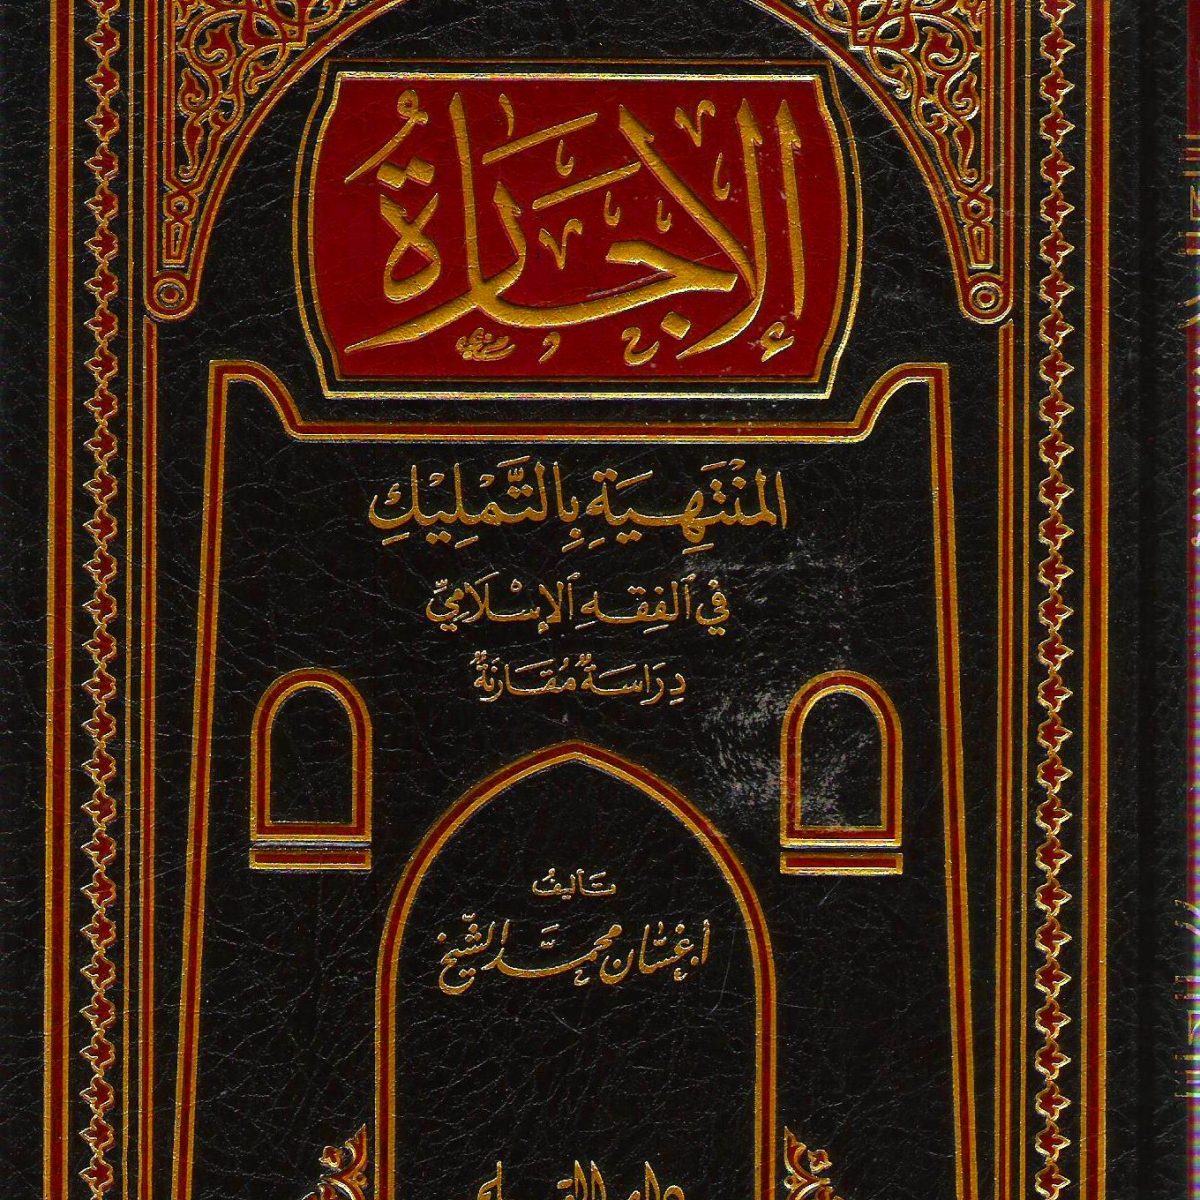 الإجَارَةُ
المنْتَهِيَةِ بِالتَّمْلِيكِ
فِي الفِقهِ الإِسْلَامِيِّ
دِرَاسَةٌ مُقَارَنَةٌ
تَأليفُ
أ. غسَّان محمَّد الشّيخ